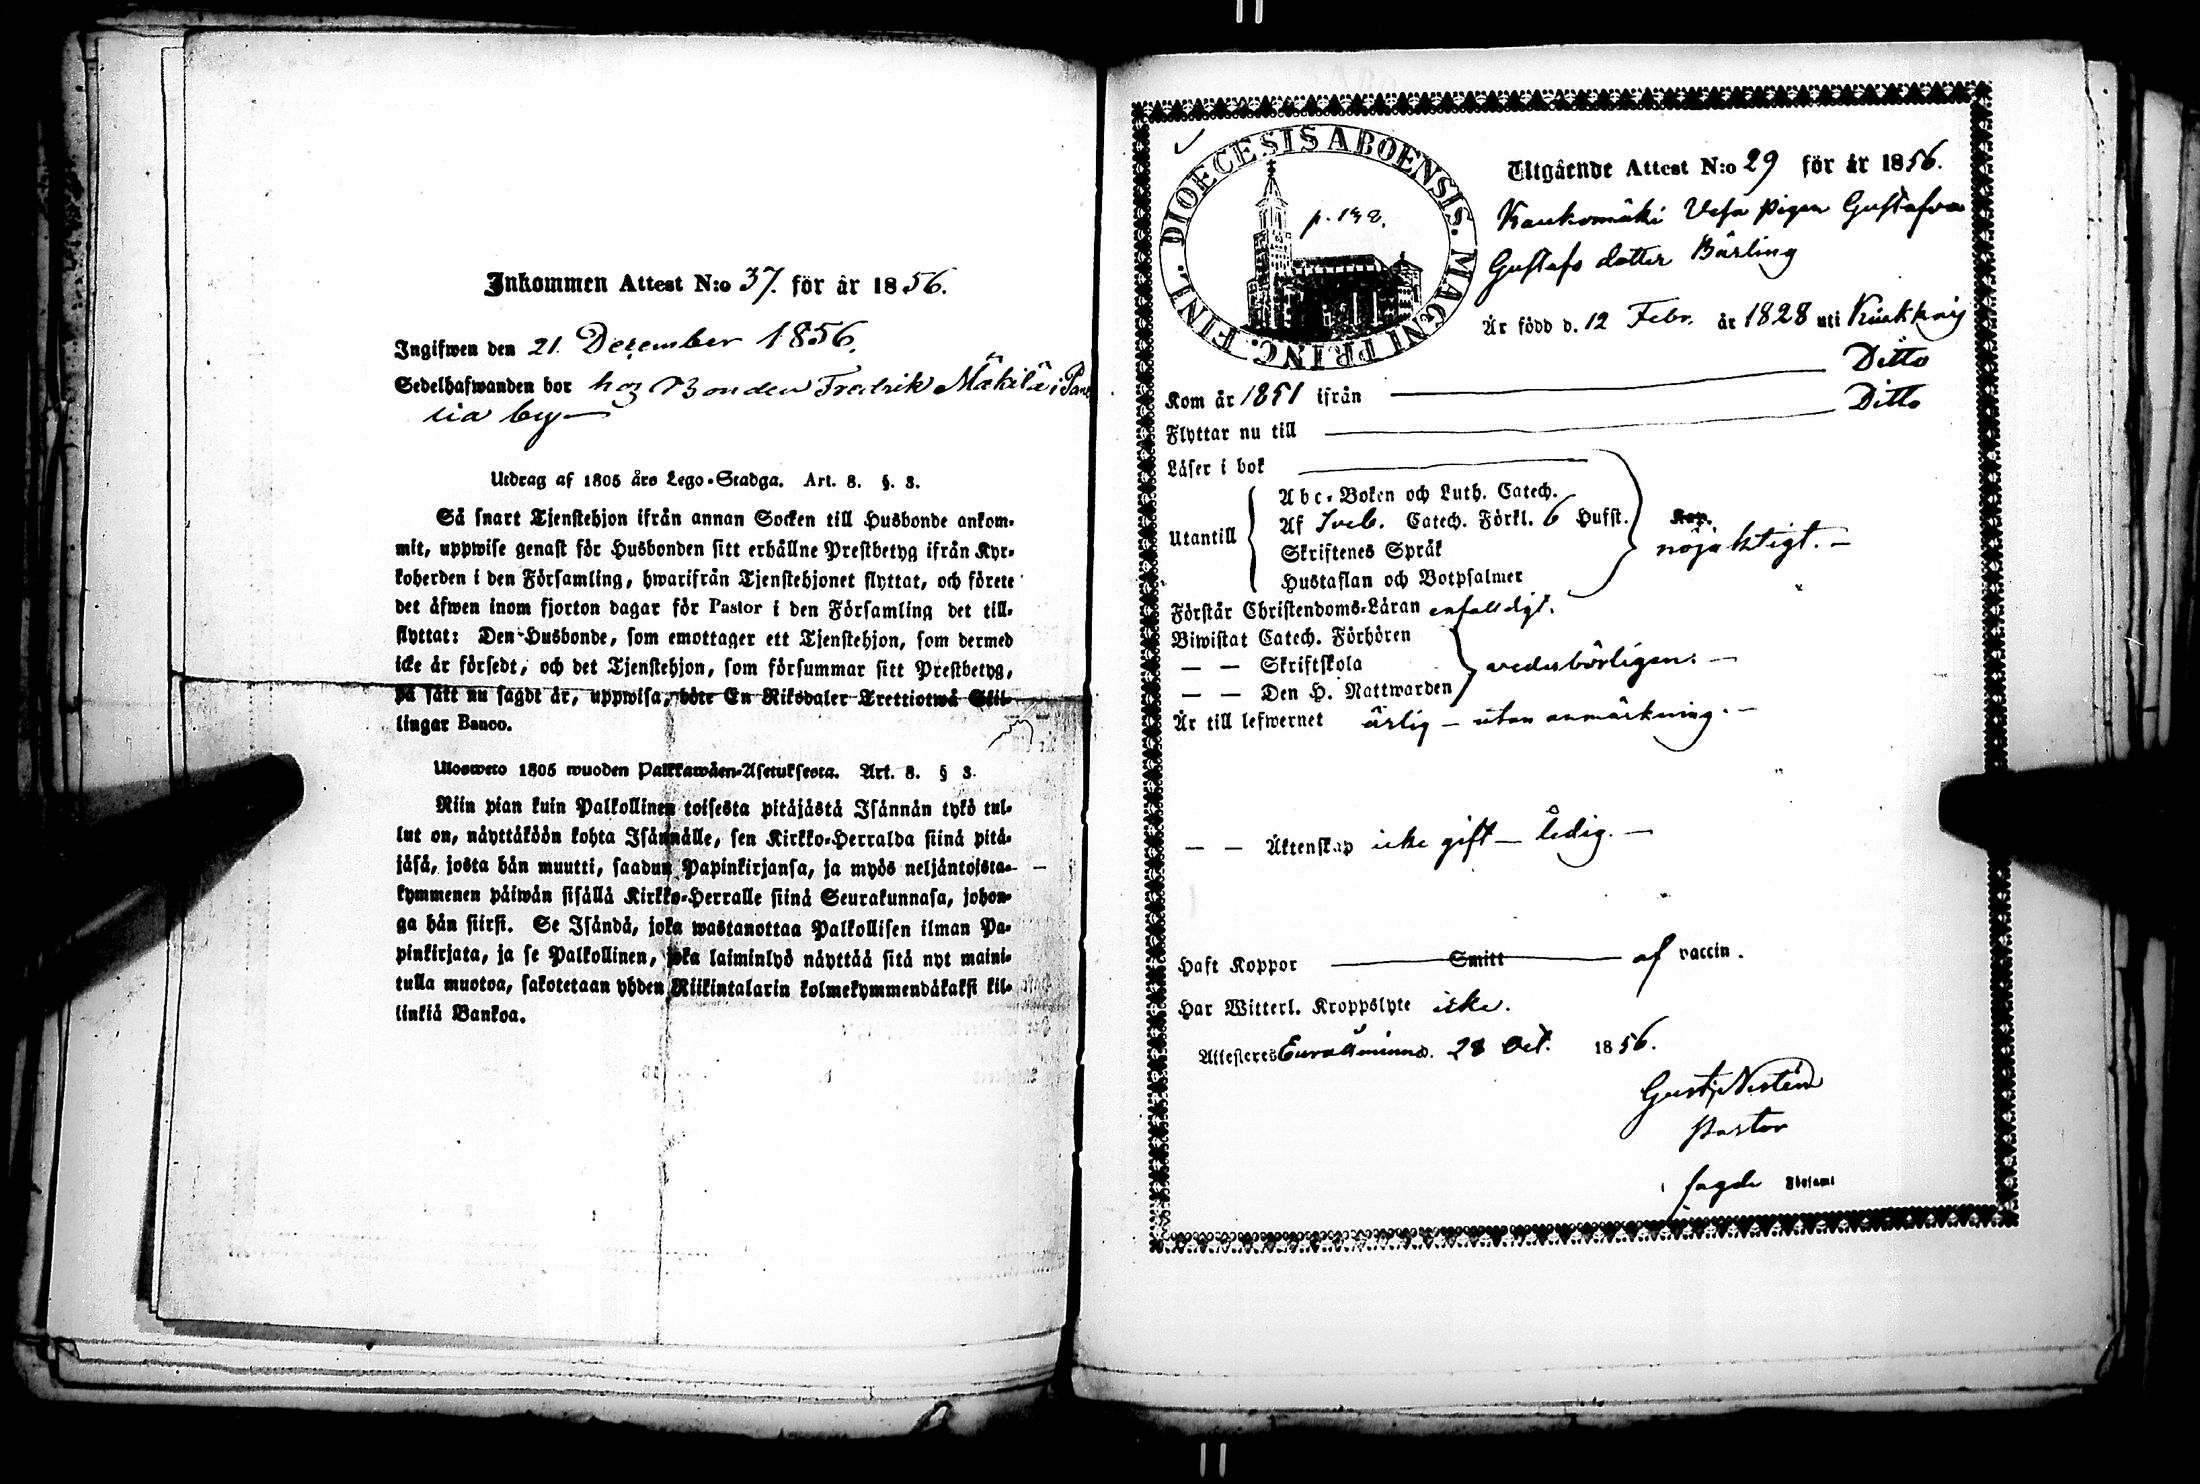 Inkommen Attest N:o 37. för år 1856.
Ingifwen den 21. December 1856.
Sedelhafwanden bor hos Bonden Fredrik Mäkilä i Pane
lia by —
Utdrag af 1805 års Lego-Stadga. Art. 8. §. 3.
Så snart Tjenstehjon ifrån annan Socken till Husbonde ankom-
mit, uppwise genast för Husbonden sitt erhållne Prestbetyg ifrån Kyr-
koherden i den Församling, hwarifrån Tjenstehjonet flyttat, och förete
det äfwen inom fjorton dagar för Pastor i den Församling det till-
flyttat: Den Husbonde, som emottager ett Tjenstehjon, som dermed
icke är försedt, och det Tjenstehjon, som försummar sitt Prestbetyg,
på sätt nu sagdt är, uppwisa, böte En Riksdaler Trettiotwå Skil-
lingar Banco.
Ulosweto 1805 wuoden Palkkawäen-Asetuksesta. Art. 8. § 3.
Niin pian kuin Palkollinen toisesta pitäjästä Isännän tykö tul-
lut on, näyttäköön kohta Isännälle, sen Kirkko-Herralda siinä pitä-
jäsä, josta hän muutti, saadun Papinkirjansa, ja myös neljäntoista-
kymmenen päiwän sisällä Kirkko-Herralle siinä Seurakunnasa, johon-
ga hän siirsi. Se Isändä, joka wastanottaa Palkollisen ilman Pa-
pinkirjata, ja se Palkollinen, joka laiminlyö näyttää sitä nyt maini-
tulla muotoa, sakotetaan yhden Riikintalarin kolmekymmendäkaksi kil-
linkiä Bankoa.
DIOECESIS ABOENSIS. MAGNI PRINC. FINL.
Utgående Attest N:o 29 för år 1856.
Kaukomäki Vesa pigan Gustafva
Gustafs dotter Bärling
Är född d. 12 Febr. år 1828 uti
Kom år 1851 ifrån — Ditto
Flyttar nu till — Ditto
Läser i bok —
Utantill
Abc-Boken och Luth. Catech.
Af Sveb. Catech. Förkl. 6 Hufst.
Skriftenes Språk
Hustaflan och Botpsalmer
nöjaktigt. —
Förstår Christendoms-Läran enfaldigt.
Biwistat Catech. Förhören
— — Skriftskola
— — Den H. Nattwarden
vederbörligen. —
Är till lefwernet ärlig — utan anmärkning. —
— — Äktenskap icke gift — ledig. —
Haft Koppor — Smitt — af vaccin.
Har Witterl. Kroppslyte icke.
Attesteres Euraåminne d. 28 Oct. 1856.
Pastor